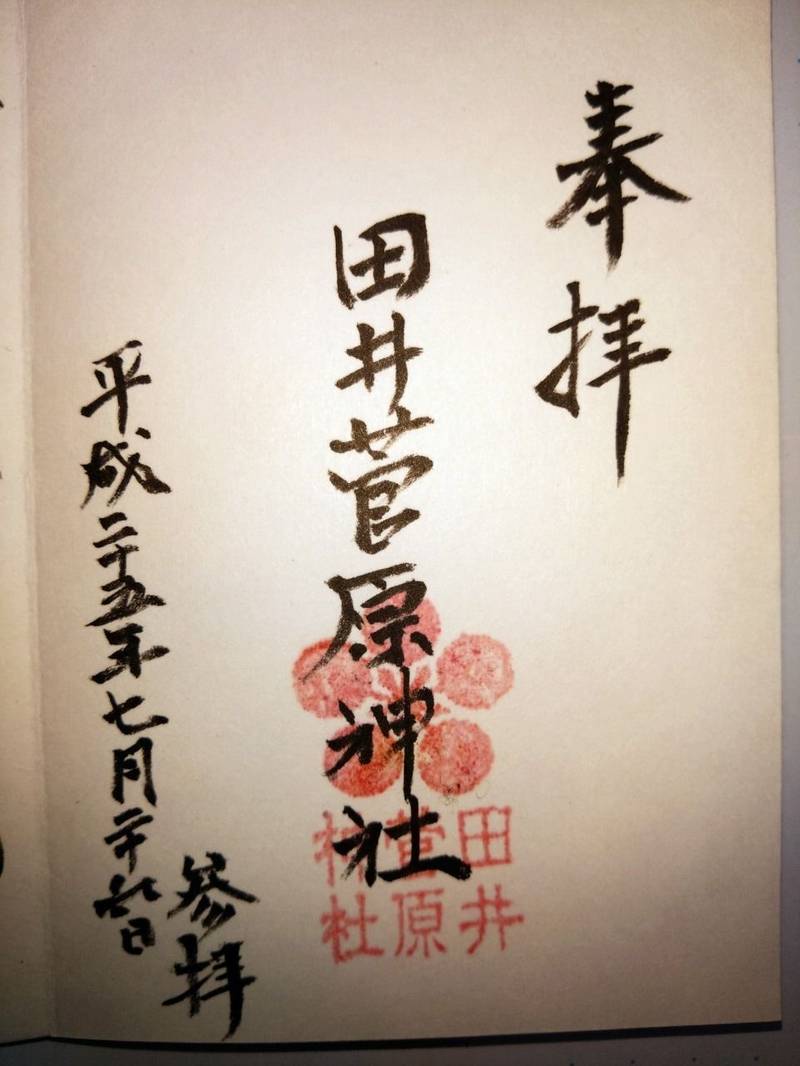 奉拝
田井菅原神社
平成二十五年七月二十日
参拝
田井
菅原
神社